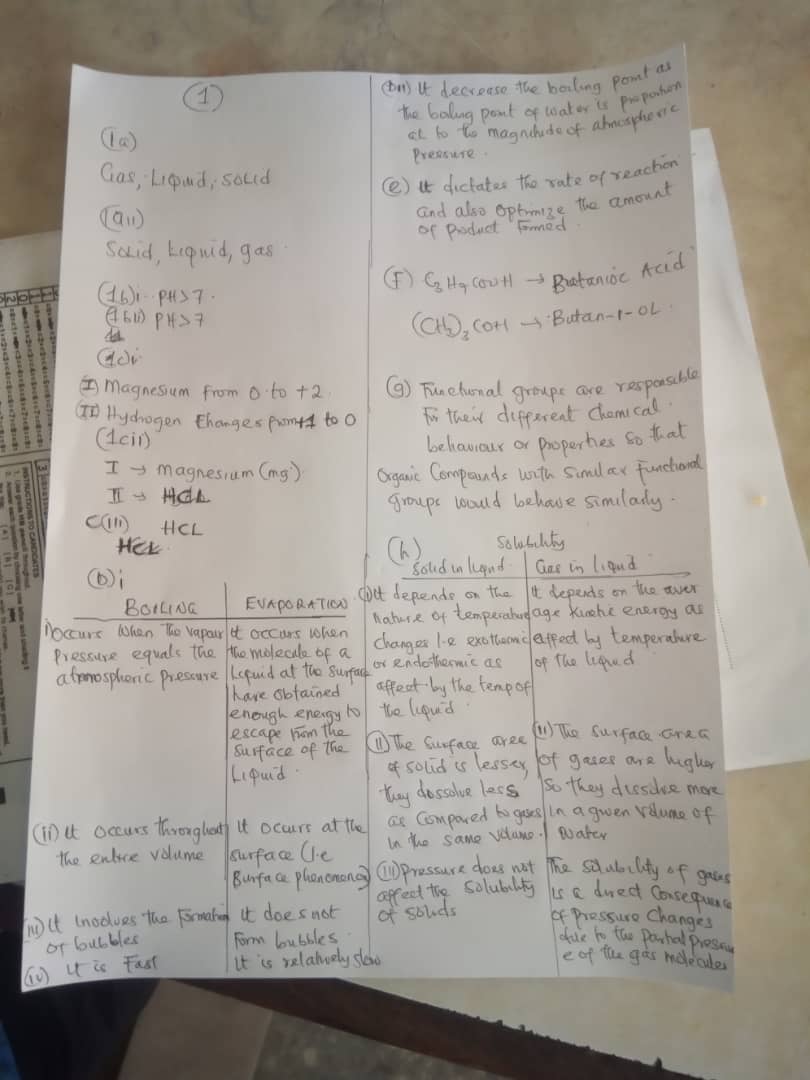 1
(1a)
Gas, Liquid, solid
(1aii)
Solid, Liquid, gas.
(1b)i. PH>7.
(1bii) PH>7
(1c)i
I) Magnesium from 0 to +2.
II) Hydrogen Changes from +1 to 0
(1cii)
I → magnesium (mg)
II → HCL
C(iii) HCL
HCL.
(D)i
BOILING EVAPORATION
i) Occurs when the vapour
Pressure equals the
atmospheric pressure
It occurs when
the molecule of a
Liquid at the surface
have obtained
enough energy to
escape from the
surface of the
Liquid.
(ii) It occurs throughout
the entire volume
It occurs at the
surface (i.e
Surface phenomenon)
(iii) It involves the formation
of bubbles
It does not
form bubbles.
(iv) It is Fast
It is relatively slow
(Dii) It decrease the boiling point as
the boiling point of water is proportion
al to the magnitude of atmospheric
Pressure.
(e) It dictates the rate of reaction
and also optimize the amount
of product formed.
(F) C3H7COOH → Butanioc Acid
(CH3)3COH → Butan-1-OL.
(g) Functional groups are responsible
for their different Chemical
behaviour or properties so that
Organic Compounds with similar functional
groups would behave similarly.
(h) Solubility
Solid in liquid Gas in liquid
(i) It depends on the
Nature of temperature
Changes i.e exothermic
or endothermic as
affect by the temp of
the liquid.
It depends on the aver
age kinetic energy as
affect by temperature
of the liquid
(ii) The surface area
of solid is lesser,
they dissolve less
as compared to gases
in the same volume.
(ii) The surface area
of gases are higher
So they dissolve more
in a given volume of
water
(iii) Pressure does not
affect the solubility
of solids
The solubility of gases
is a direct consequence
of pressure changes
due to the partial pressur
e of the gas molecules
INSTRUCTIONS TO CANDIDATES